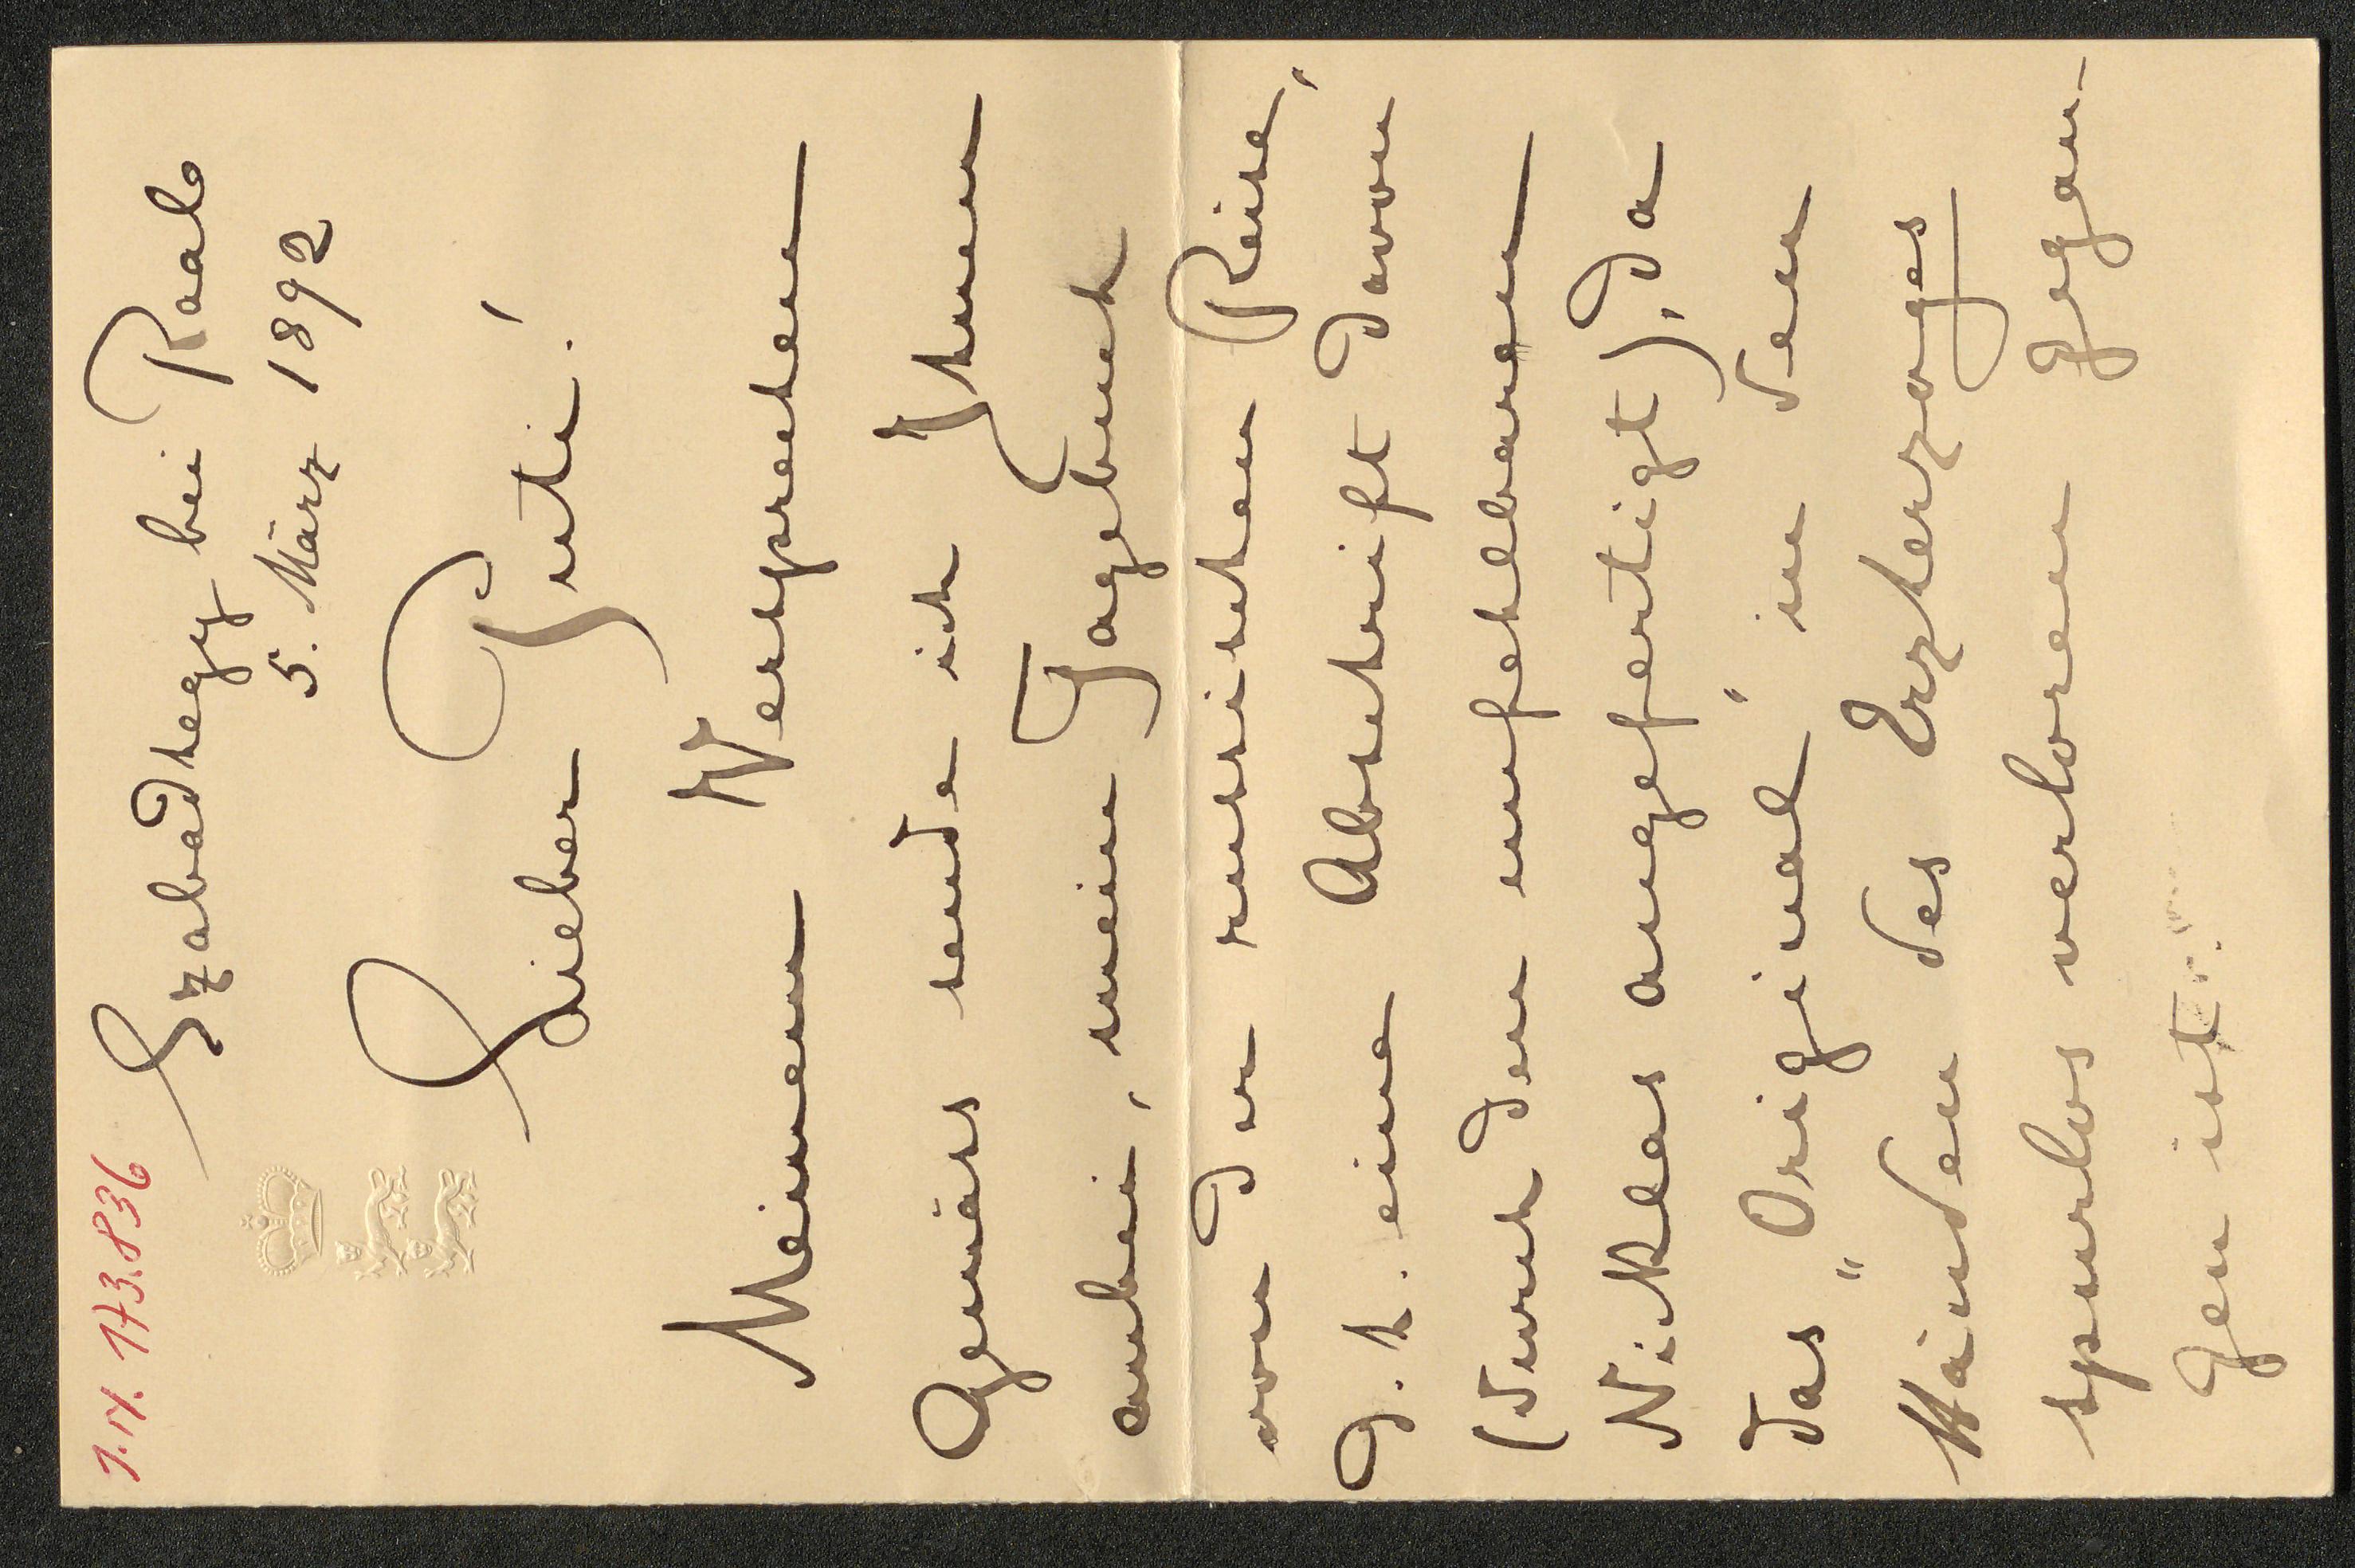 J.N. 173.836
Szabadhegy bei Raab
5. März 1892
Lieber Puti!
Meinem Versprechen
Gemäss sende ich Ihnen
anbei, mein Tagebuch
von der russischen Reise,
d. h. eine Abschrift davon
(durch den unfehlbaren
Nickes angefertigt), da
das "Original" in den
Händen des Erzherzoges
spurlos verloren gegan-
gen ist.